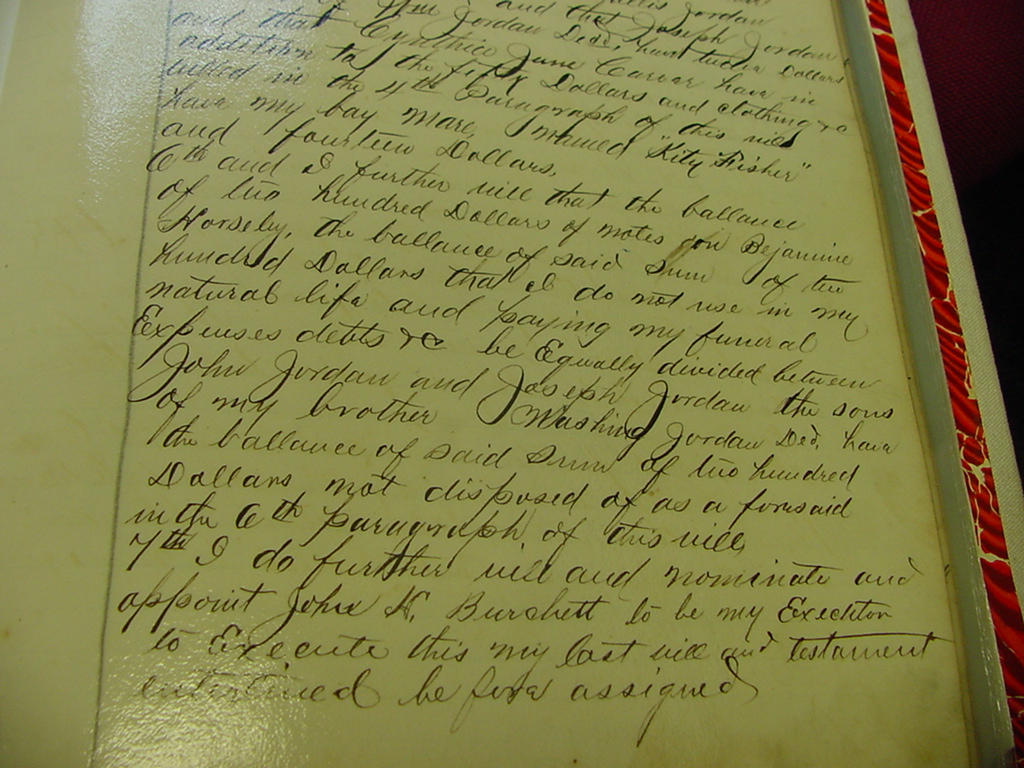 Jordan
of Wm and that Joseph Jordan
and that Jordan Decd, have twelve Dollars
Cynthia Jane Carver have in
addition to the fifty Dollars and clothing &c
willed in the 4th Paragraph of this will
have my bay mare, named "Kity Fisher"
and fourteen Dollars.
6th and I further will that the ballance
of two hundred Dollars of notes on Bejamine
Horseley, the ballance of said sum of two
hundred Dollars that I do not use in my
natural life and paying my funeral
Expenses debts &c be Equally divided between
John Jordan and Joseph Jordan the sons
of my brother Washing Jordan Decd. have
the ballance of said sum of two hundred
Dollars not disposed of as a foresaid
in the 6th paragraph of this will
7th I do further will and nominate and
appoint John H. Burchett to be my Execktor
to Execute this my last will and testament
entertined be fore assigned